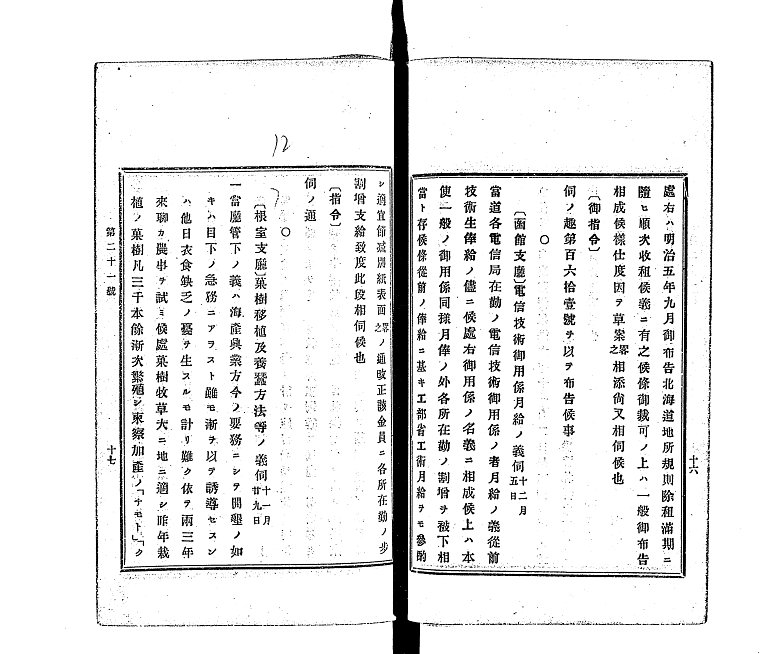 處右ハ明治五年九月御布告北海道地所規則除租滿期ニ
隨ヒ順次收租候義ニ有之候條御裁可ノ上ハ一般御布告
相成候樣仕度因テ草案略之相添尙又相伺候也
〔御指令〕
伺ノ趣第百六拾壹號ヲ以テ布告候事
○
〔函館支廳〕電信技術御用係月給ノ義伺十二月五日
當道各電信局在勤ノ電信技術御用係ノ者月給ノ義從前
技術生俸給ノ儘ニ候處右御用係ノ名義ニ相成候上ハ本
使一般ノ御用係同樣月俸ノ外各所在勤ノ割增ヲ被下相
當ト存候條從前ノ俸給ニ基キ工部省工術月給ヲモ參酌
十六
シ適宜節減別紙表面略之ノ通改正該金員ニ各所在勤ノ步
割增支給致度此段相伺候也
〔指令〕
伺ノ通
○
〔根室支廳〕菓樹移植及養蠶方法等ノ義伺十一月廿九日
一當廳管下ノ義ハ海產興業方今ノ要務ニシテ開墾ノ如
キハ目下ノ急務ニアラスト雖モ漸ヲ以テ誘導セスン
ハ他日衣食缺乏ノ憂ヲ生スルモ計リ難ク依テ兩三年
來聊カ農事ヲ試ミ候處菓樹牧草大ニ地ニ適シ昨年栽
植ノ菓樹凡三千本餘漸次繁殖シ東察加產ノ「チモト」ク
第二十一號
十七
12